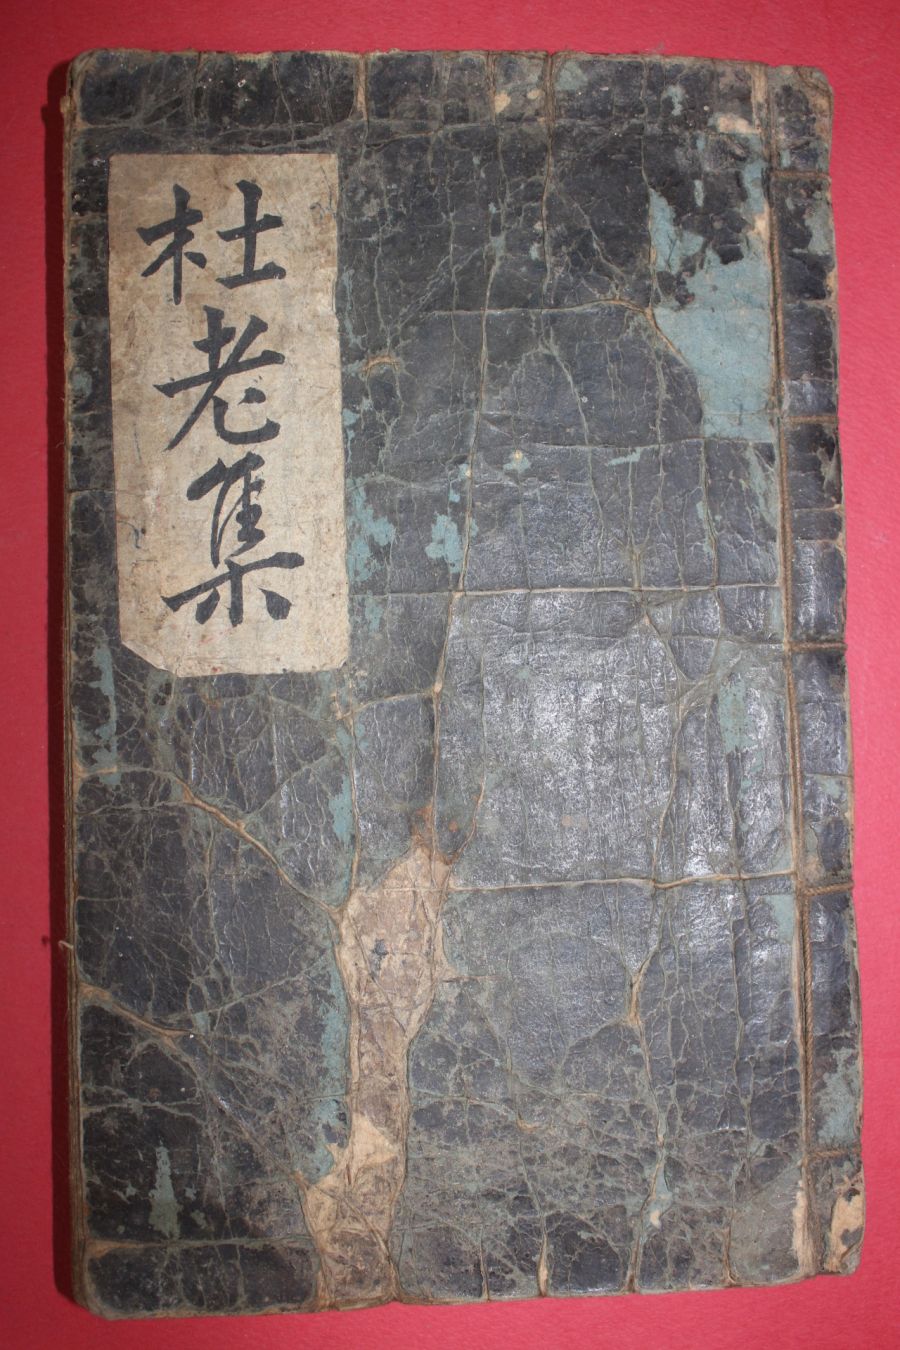 杜老集